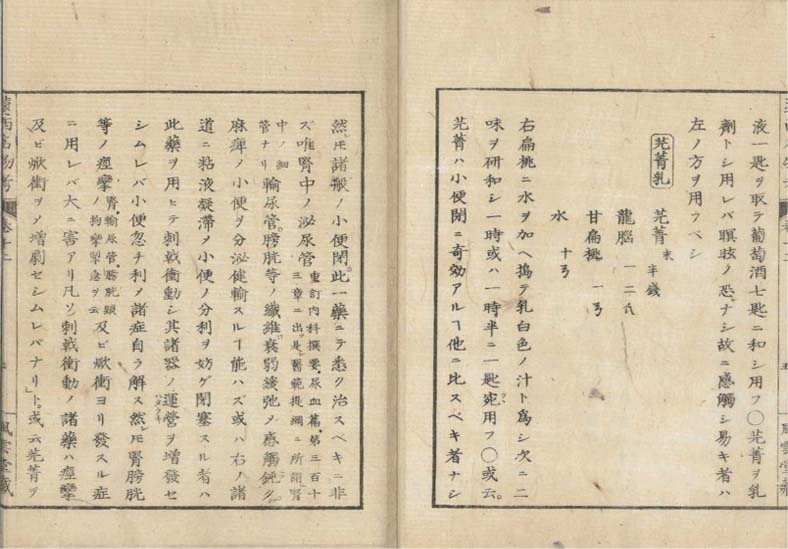 液一匙ヲ取テ葡萄酒七匙ニ和シ用フ〇芫菁ヲ乳
劑トシ用レバ瞑眩ノ恐ナシ故ニ感觸シ易キ者ハ
左ノ方ヲ用ウベシ
芫菁乳 芫菁末 半錢
龍腦 一二氏
甘扁桃 一弓
水 十弓
右扁桃ニ水ヲ加ヘ搗テ乳白色ノ汁ト爲シ次ニ二
味ヲ研和シ一時或ハ一時半ニ一匙宛用フ〇或云
芫菁ハ小便閉ニ奇効アルヿ他ニ比スベキ者ナシ
然𪜈諸般ノ小便閉此一藥ニテ悉ク治スベキニ非
ズ唯腎中ノ泌尿管重訂内科撰要尿血篇第三百十
三章ニ出ツ是レ醫範提綱ニ所謂腎
中ノ細
管ナリ輸尿管膀胱等ノ纖維衰弱緩弛ヲ感觸鈍ク
麻痺ノ小便ヲ分泌健輸スルヿ能ハズ或ハ右ノ諸
道ニ粘液凝滯ヲ小便ノ分利ヲ妨ゲ閉塞スル者ハ
此藥ヲ用ヒテ刺戟衝動シ其諸器ノ運營ヲ增發セ
シムレバ小便忽チ利メ諸症自ラ解ス然𪜈腎膀胱
等ノ痙攣腎輸尿管膀胱頸
ノ拘攣掣急ヲ云及ビ焮衝ヨリ發スル症
ニ用レバ大ニ害アリ凡ソ刺戟衝動ノ諸藥ハ痙攣
及ビ焮衝ヲメ增劇セシムレバナリト或云芫菁ヲ
風雲堂藏